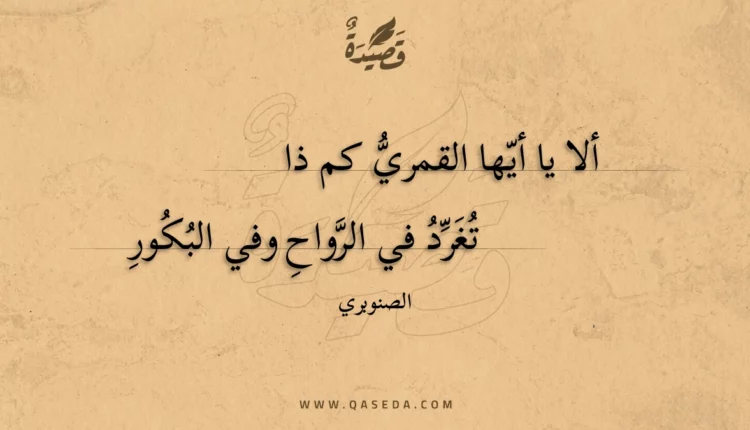 قَصِيْدَةٌ
ألا يا أيّها القمريُّ كم ذا
تُغَرِّدُ في الرَّواحِ وفي البُكُورِ
الصنوبري
WWW.QASEDA.COM